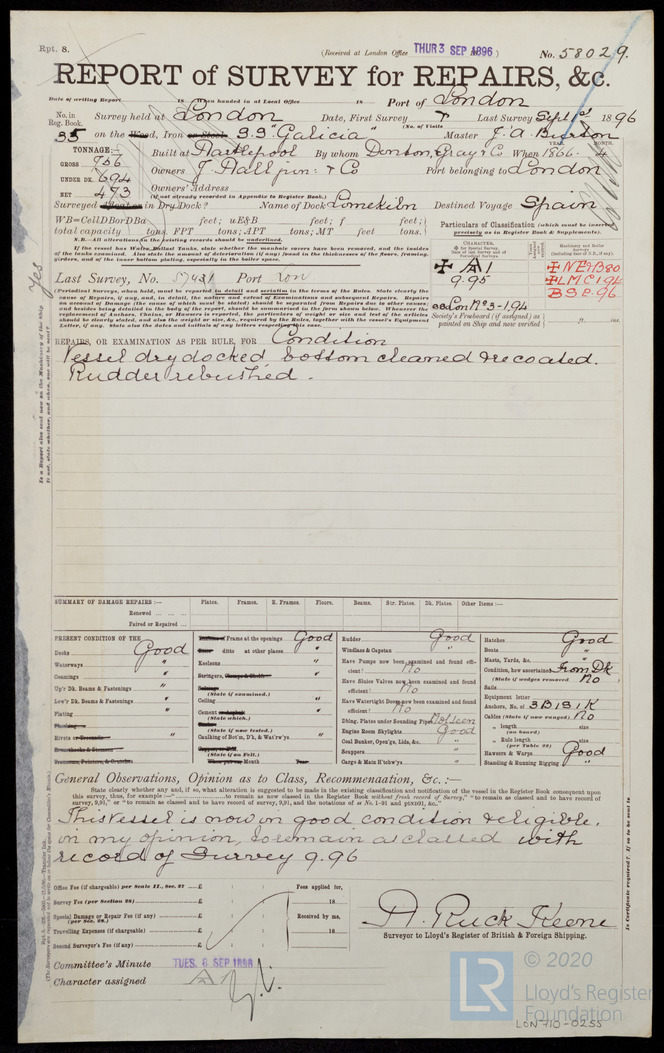 Rpt. 8.
(Received at London Office THUR 3 SEP 1896)
No. 58029.
REPORT of SURVEY for REPAIRS, &c.
Date of writing Report 18 When handed in at Local Office 18 Port of London
No. in Reg. Book. Survey held at London Date, First Survey Last Survey Sept 1896
(No. of Visits
35 on the Wood, Iron or Steel S.S "Galicia" Master
TONNAGE:— Built at Hartlepool By whom Denton, Gray & Co When 1866. 4
YEAR. MONTH.
GROSS 956
UNDER DK. 694
NET 473
Owners J. Hall jun. & Co Port belonging to London
Owners' Address
(if not already recorded in Appendix to Register Book.)
Surveyed Afloat or in Dry Dock? Name of Dock Limekiln Destined Voyage Spain
WB=CellDBorDBa feet; uE&B feet; f feet;
total capacity tons. FPT tons; APT tons; MT feet tons.
N.B.—All alterations in the existing records should be underlined.
If the vessel has Water Ballast Tanks, state whether the manhole covers have been removed, and the insides
of the tanks examined. Also state the amount of deterioration (if any) found in the thicknesses of the floors, framing,
girders, and of the inner bottom plating, especially in the boiler space.
Particulars of Classification (which must be inserted
precisely as in Register Book & Supplements).
CHARACTER.
✠ A1
9.95
✠ NE&B80
✠ LMC 1.94
BS 2.96
ssLonNo3-1.94
Society's Freeboard (if assigned) as
painted on Ship and now verified ft. ins.
Yes
Last Survey, No. Port Lon
(Periodical Surveys, when held, must be reported in detail and seriatim in the terms of the Rules. State clearly the
cause of Repairs, if any, and, in detail, the nature and extent of Examinations and subsequent Repairs. Repairs
on account of Damage (the cause of which must be stated) should be separated from Repairs due to other causes;
and besides being detailed in the body of the report, should be summarised in the form shown below. Whenever the
replacement of Anchors, Chains, or Hawsers is reported, the particulars of weight or size and test of the articles
should be clearly stated, and also the weight or size, &c., required by the Rules, together with the vessel's Equipment
Letter, if any. State also the dates and initials of any letters respecting this case.
REPAIRS, OR EXAMINATION AS PER RULE, FOR Condition
Vessel drydocked bottom cleaned & recoated.
Rudder rebushed.
SUMMARY OF DAMAGE REPAIRS:— Plates. Frames. R. Frames. Floors. Beams. Str. Plates. Dk. Plates. Other Items:—
Renewed
Faired or Repaired
PRESENT CONDITION OF THE
Decks Good
Waterways "
Coamings "
Up'r Dk. Beams & Fastenings "
Low'r Dk. Beams & Fastenings "
Plating "
Rivets "
Frame at the openings Good
ditto at other places "
Keelsons "
Stringers, "
(State if examined.)
Ceiling "
Cement "
(State which.)
(State if now tested.)
Caulking of Bot'm, D'k, & Wat'rw'ys "
(State if on Felt.)
Rudder Good
Windlass & Capstan "
Have Pumps now been examined and found efficient? No
Have Sluice Valves now been examined and found efficient? No
Have Watertight Doors now been examined and found efficient? No
Dblng. Plates under Sounding Pipes Not seen
Engine Room Skylights Good
Coal Bunker, Open'gs, Lids, &c. "
Scuppers "
Cargo & Main H'tchw'ys "
Hatches Good
Boats "
Masts, Yards, &c. "
Condition, how ascertained From Dk
(State if wedges removed. No
Sails
Equipment letter
Anchors, No. of 3B 1S 1K
Cables (State if now ranged) No
" length size
(on board)
" Rule length size
(per Table 22)
Hawsers & Warps Good
Standing & Running Rigging "
General Observations, Opinion as to Class, Recommendation, &c.:—
State clearly whether any, and if so, what alteration is suggested to be made in the existing classification and notification of the vessel in the Register Book consequent upon
this survey, thus, for example:—" to remain as now classed in the Register Book without fresh record of Survey," "to remain as classed and to have record of
survey, 9,91," or "to remain as classed and to have record of survey, 9,91, and the notations of ss No. 1-91 and ptsND91, &c."
This vessel is now in good condition & eligible,
in my opinion, to remain as classed with
record of Survey 9.96
Office Fee (if chargeable) per Scale II., Sec. 27 £ Fees applied for,
Survey Fee (per Section 28) £ 18
Special Damage or Repair Fee (if any) £
(per Sec. 28.)
Received by me,
Travelling Expenses (if chargeable) £ 18
Second Surveyor's Fee (if any) £
A. Ruck Keene
Surveyor to Lloyd's Register of British & Foreign Shipping.
Committee's Minute TUES. 8 SEP 1896
Character assigned A1
LR © 2020
Lloyd's Register
Foundation
LON 710-0255